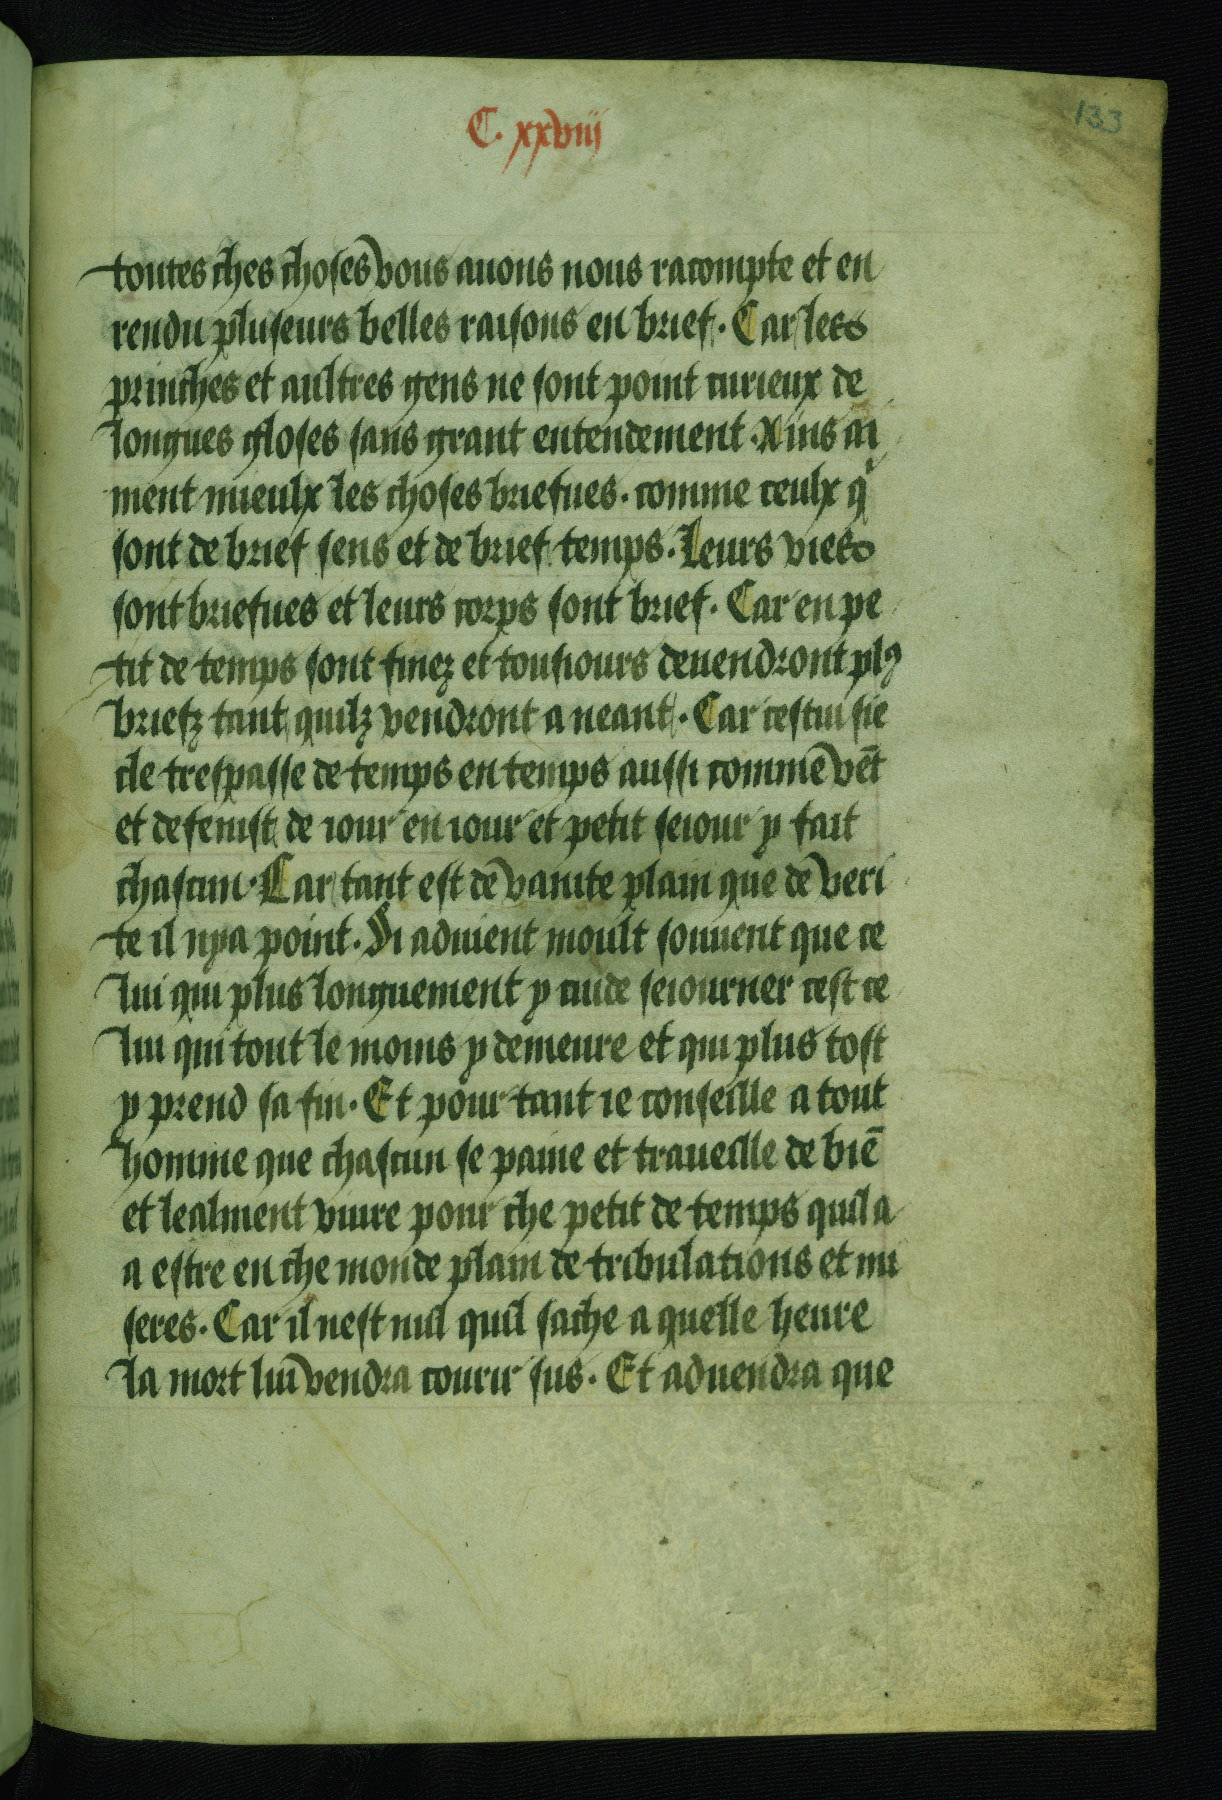 C. xxviii
133
toutes ches choses vous auons nous racompte et en
rendu pluseurs belles raisons en brief. Car les
prinches et aultres gens ne sont point curieux de
longues gloses sans grant entendement. Ains ai
ment mieulx les choses briefues. comme ceulx qͥ
sont de brief sens et de brief temps. Leurs vies
sont briefues et leurs corps sont brief. Car en pe
tit de temps sont finez et tousiours deuendront plꝰ
briefz tant quilz vendront a neant. Car cestui sie
cle trespasse de temps en temps aussi comme vēt
et defenist de iour en iour et petit seiour y fait
chascun. Car tant est de vanite plain que de veri
te il nya point. Si aduient moult souuent que ce
lui qui plus longuement y cuide seiourner cest ce
lui qui tout le moins y demeure et qui plus tost
y prend sa fin. Et pour tant ie conseille a tout
homme que chascun se paine et traueille de biē
et lealment viure pour che petit de temps quil a
a estre en che monde plain de tribulations et mi
seres. Car il nest nul quil sache a quelle heure
la mort lui vendra courir sus. Et aduendra que